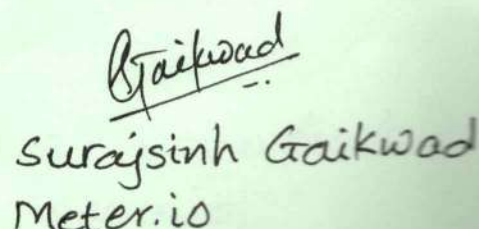 SGaikwad
Surajsinh Gaikwad
Meter.io